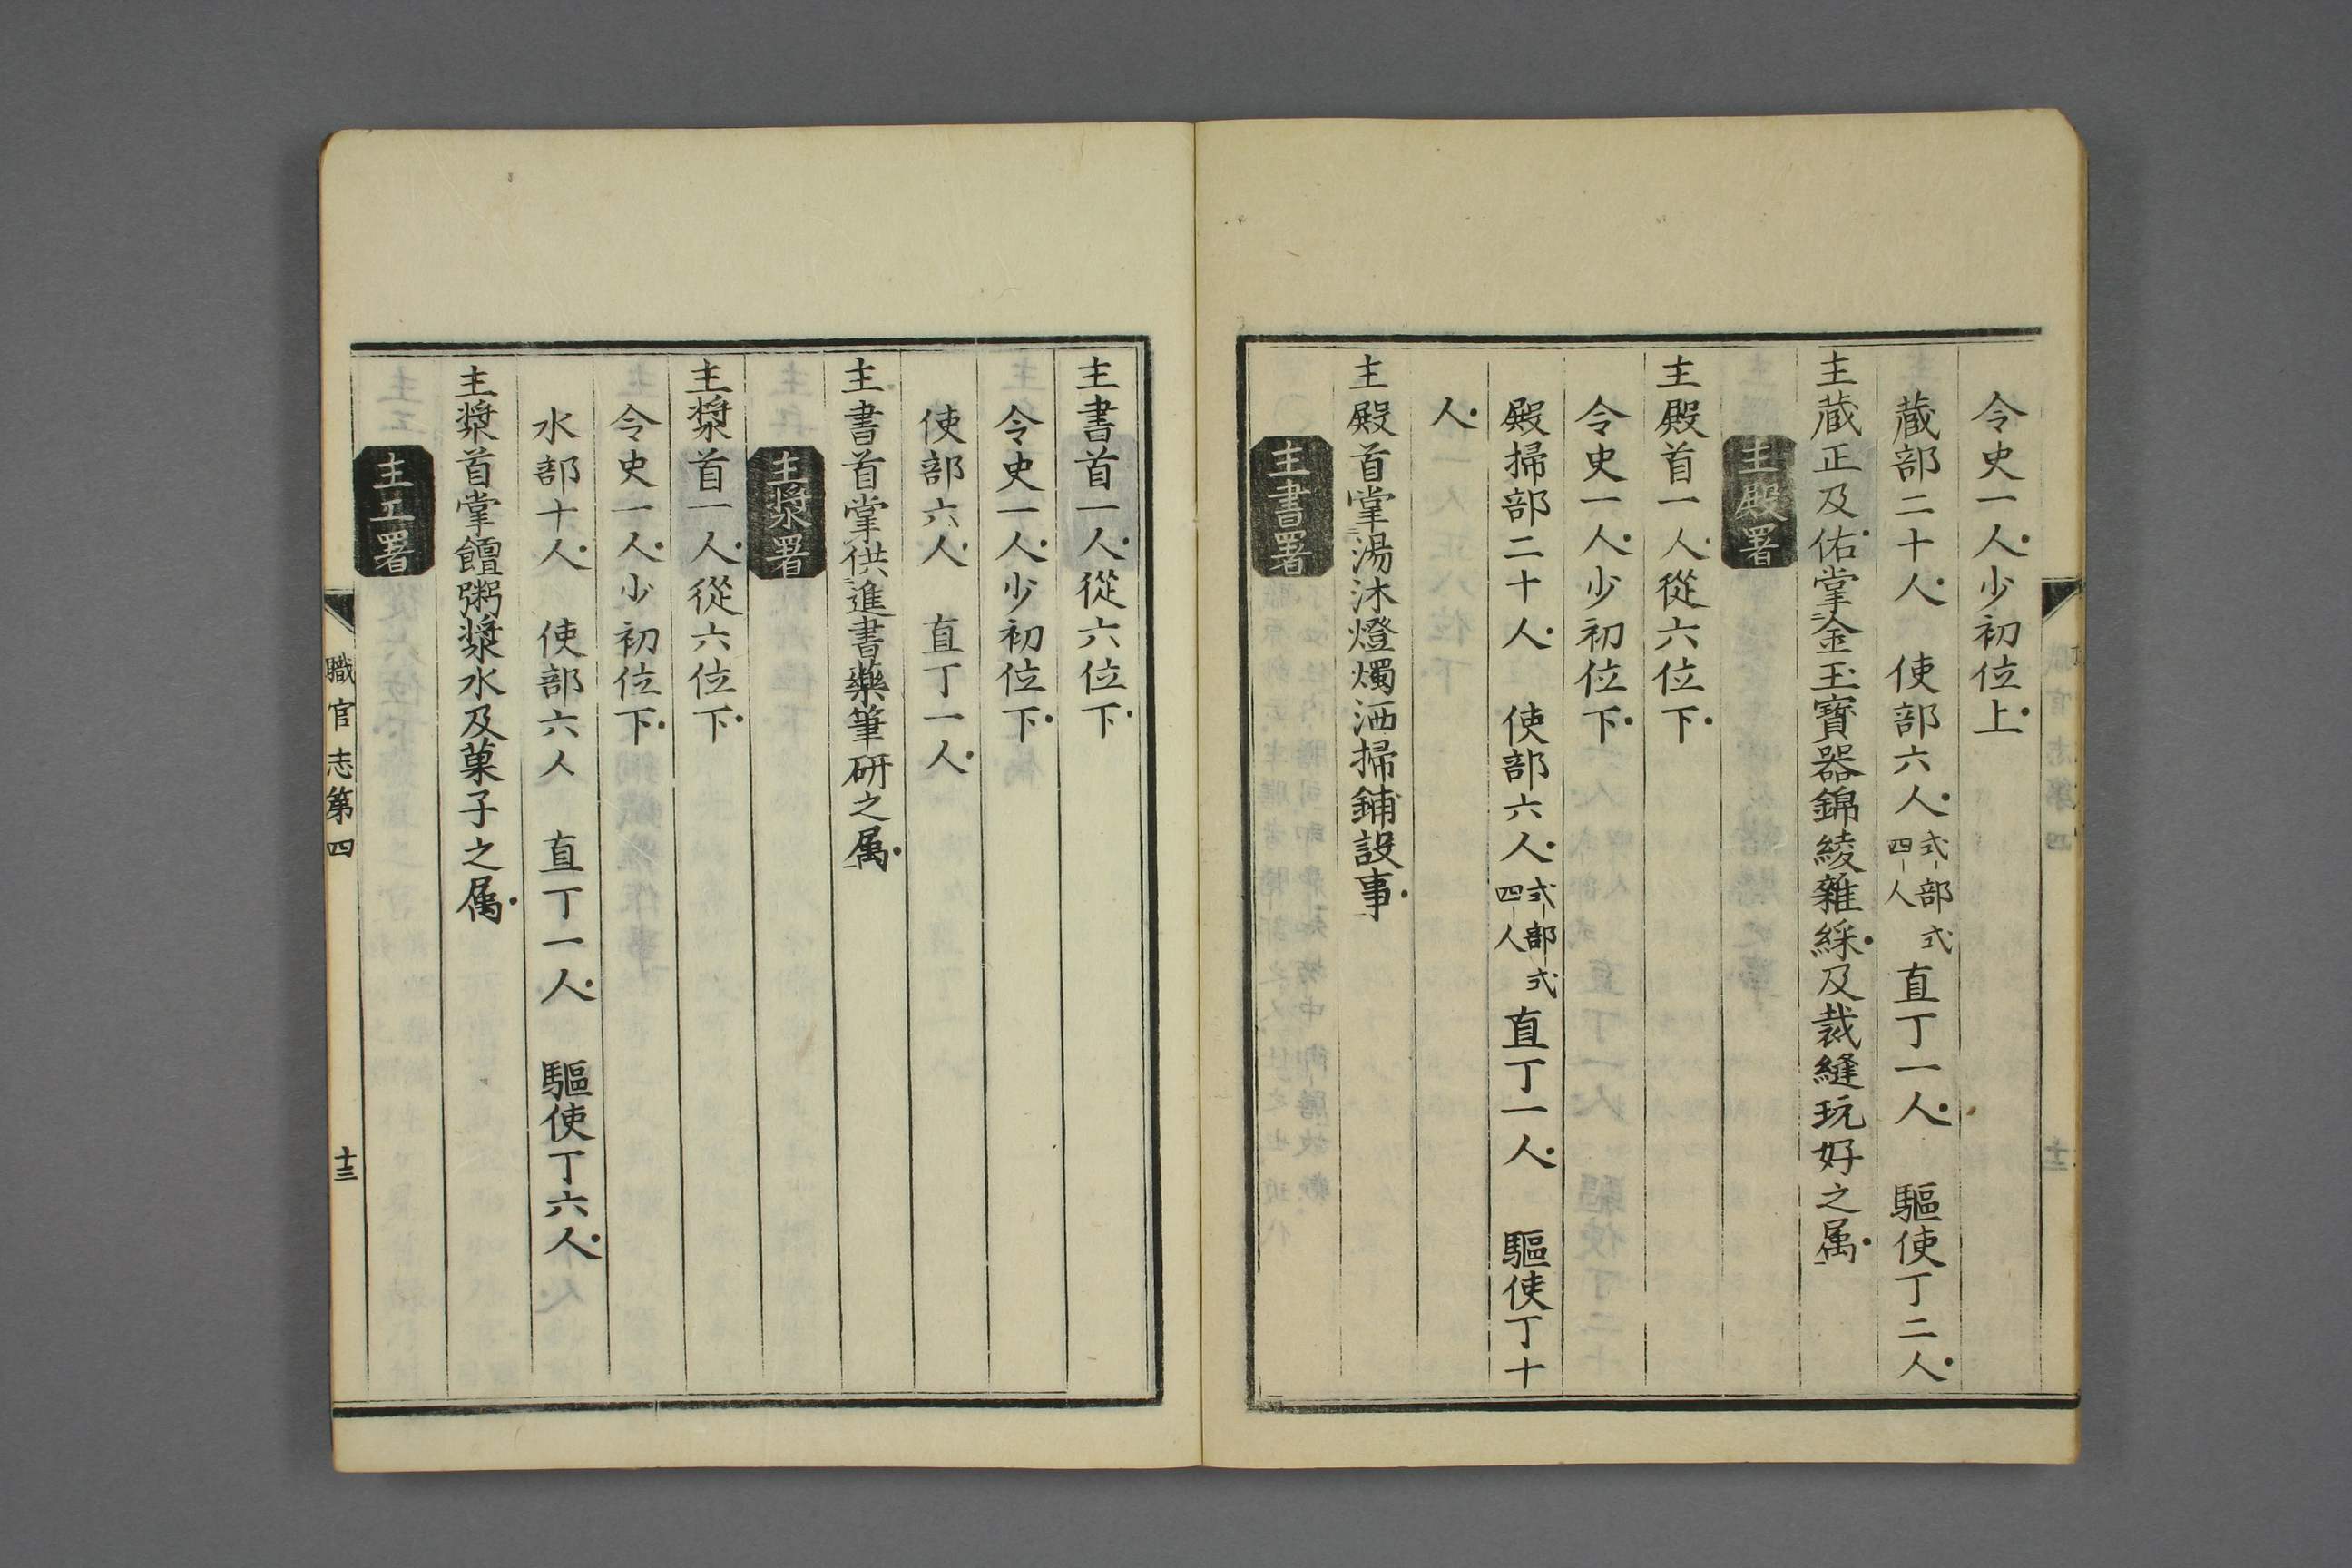 令史一人少初位上
蔵部二十人　使部六人式部式四人直丁一人　驅使丁二人
主蔵正及佑掌金玉寳器錦綾雜綵及裁縫玩好之属
主殿署
主殿首一人從六位下
令史一人少初位下
殿掃部二十人　使部六人式部式四人直丁一人　驅使丁十
人
主殿首掌湯沐燈燭洒掃鋪設事
主書署
主書首一人從六位下
令史一人少初位下
使部六人　直丁一人
主書首掌供進書藥筆研之属
主漿署
主漿首一人從六位下
令史一人少初位下
水部十人　使部六人　直丁一人　驅使丁六人
主漿首掌饘粥漿水及菓子之属
主工署
職官志第四
十三